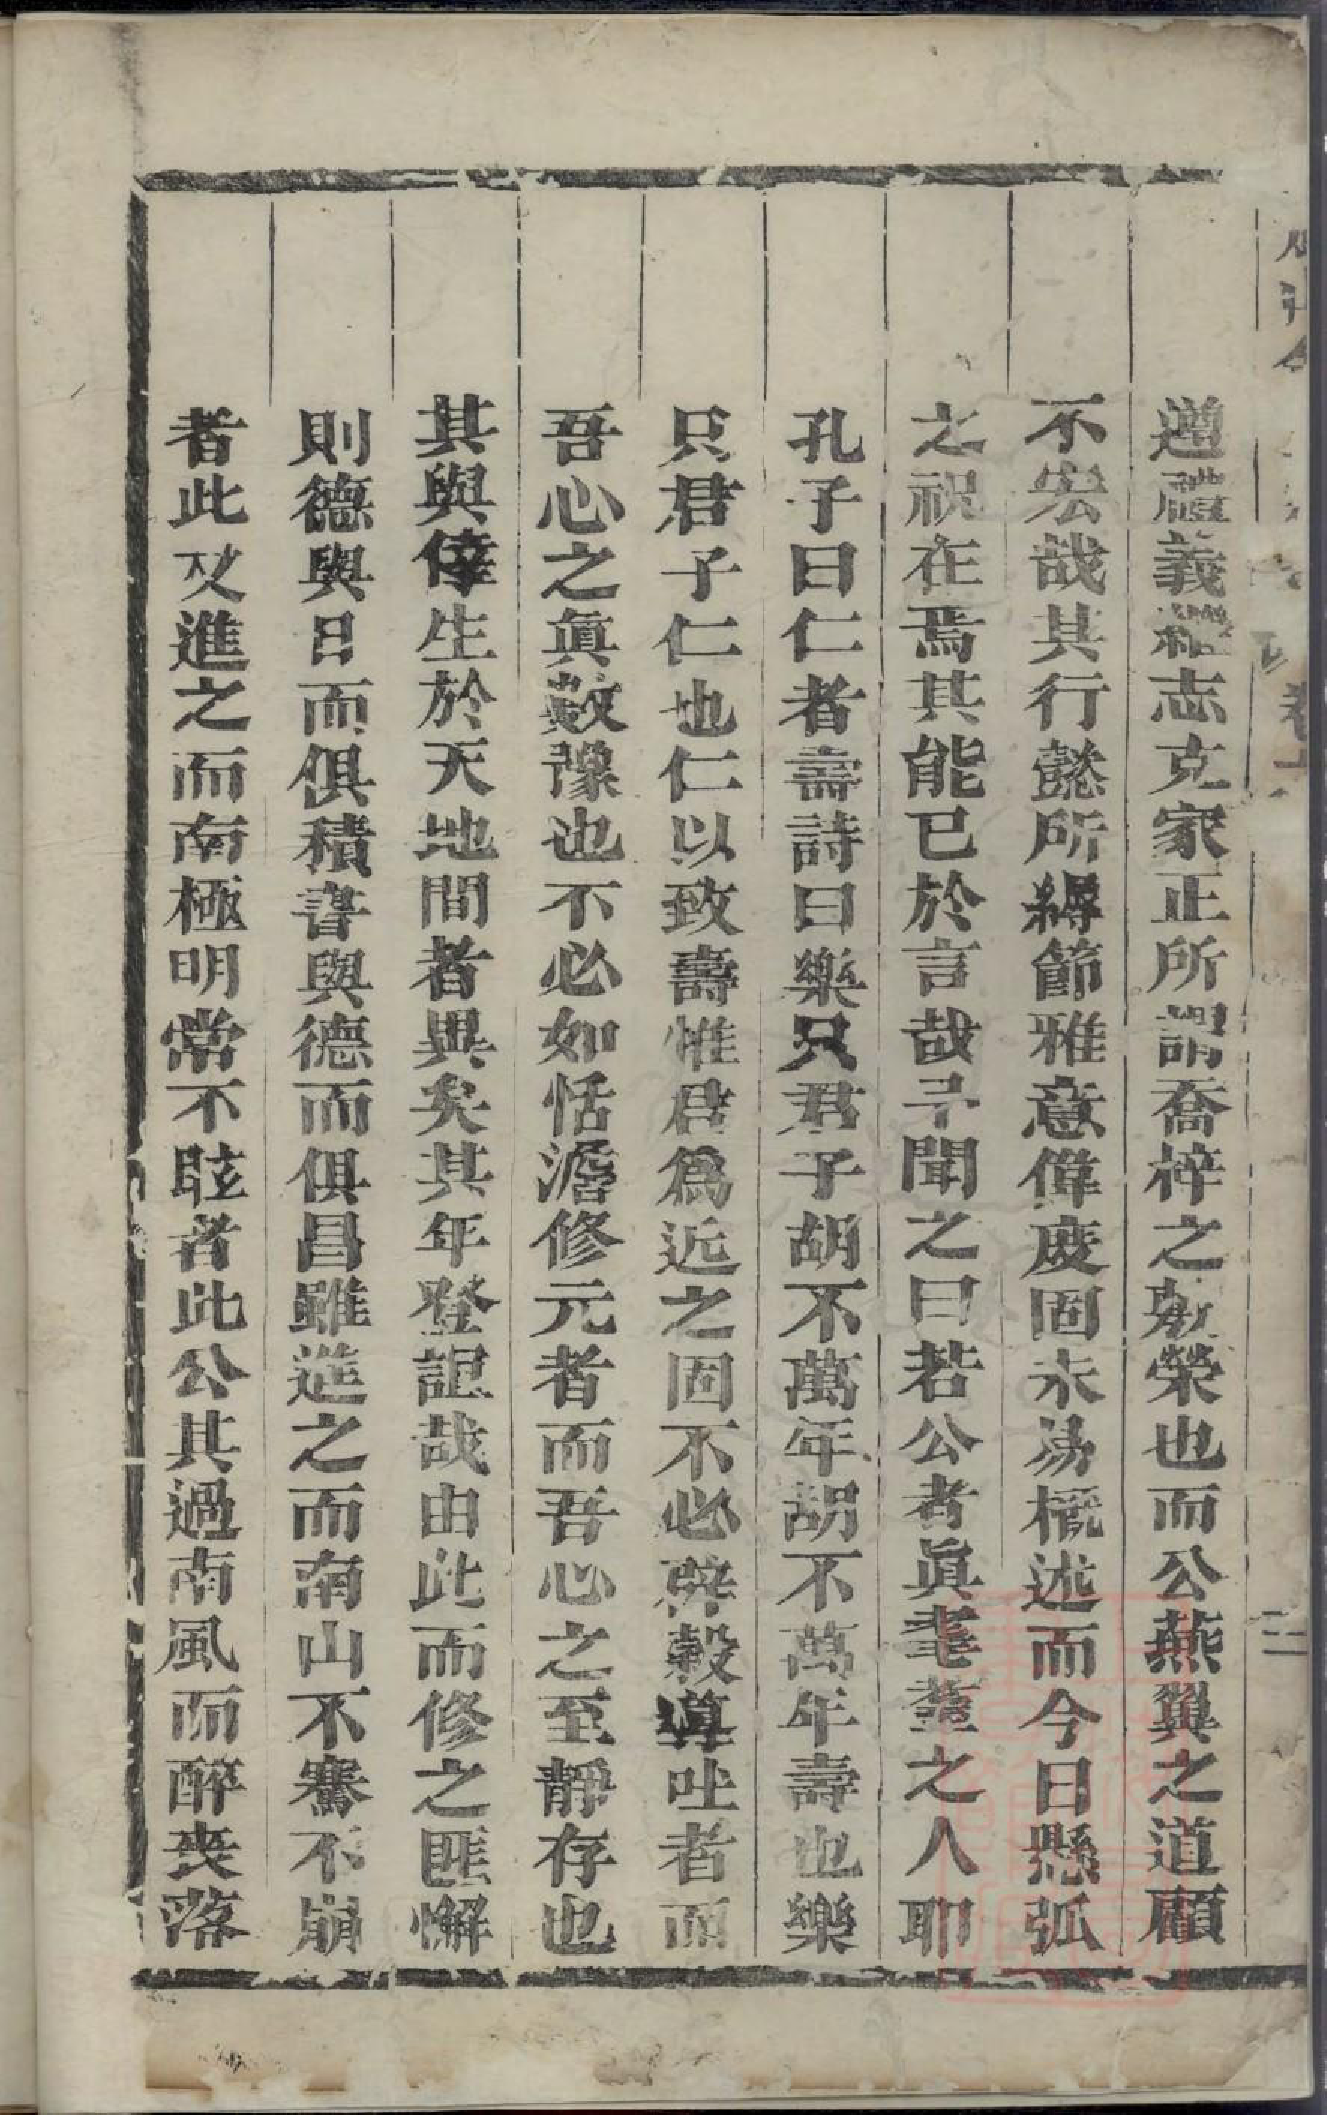 遵禮義繼志克家正所謂喬梓之敷榮也而公燕翼之道顧
不宏哉其行懿所縟節雅意偉度固未易概述而今日懸弧
之祝在焉其能已於言哉予聞之曰若公者眞耄耋之人耶
孔子曰仁者壽詩曰樂只君子胡不萬年胡不萬年壽也樂
只君子仁也仁以致壽惟君爲近之固不必辟穀導吐者而
吾心之眞歡豫也不必如恬澹修元者而吾心之至靜存也
其與倖生於天地間者異矣其年登詎哉由此而修之匪懈
則德與日而俱積書與德而俱昌雖進之而南山不騫不崩
者此又進之而南極明常不眩者此公其過南風而醉喪落
卷十
三